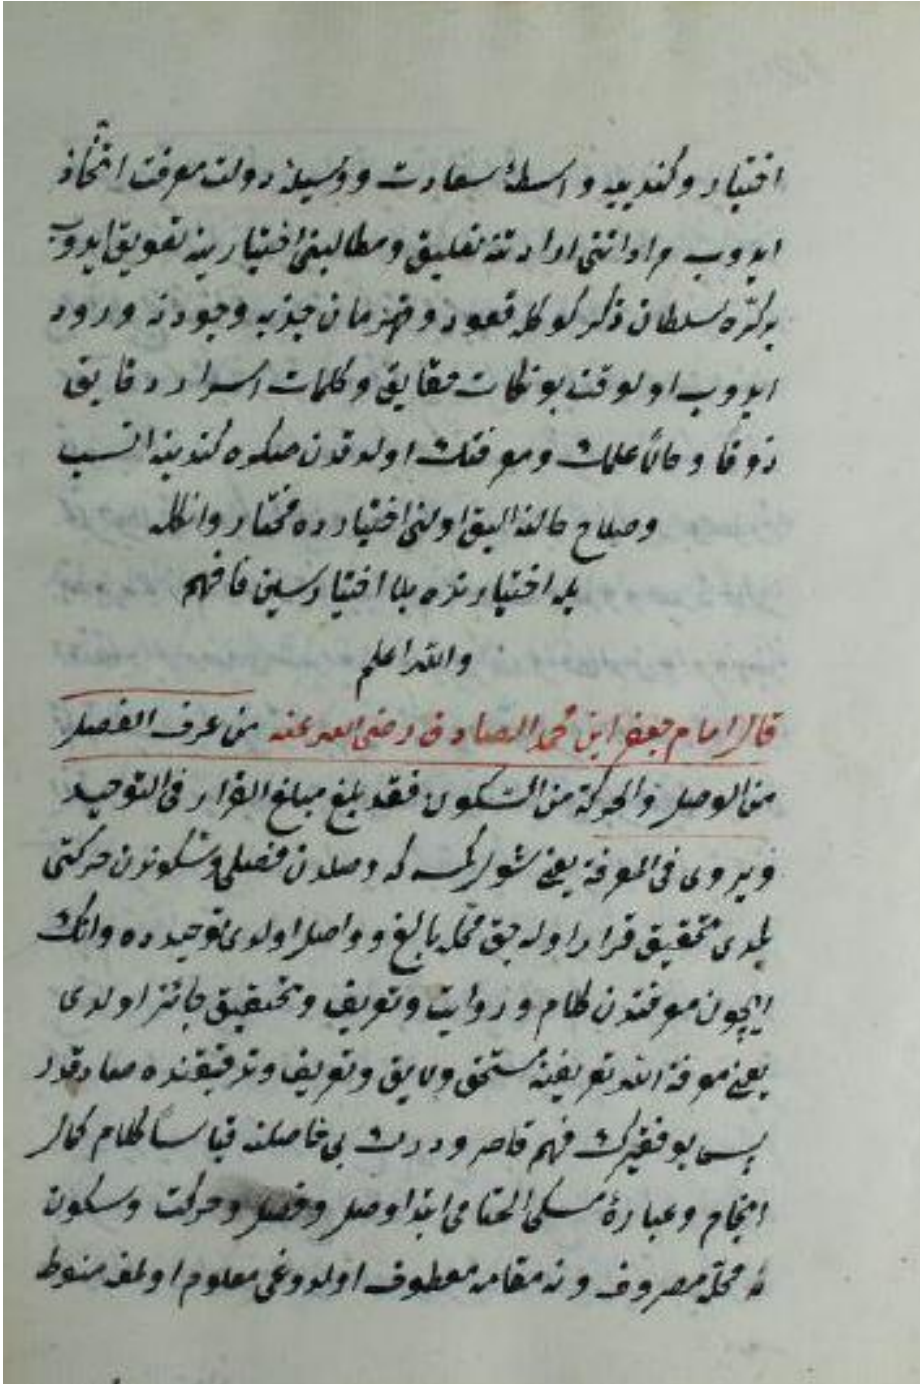 اختیار و کندییه واسطهٔ سعادت و وسیلهٔ دولت معرفت اتّخاذ
ایدوب مراداتنی ارادتنه تعلیق و مطالبنی اختیارینه تفویض ایدوب
بر کرّه سلطان ذکر کوکله قعود و قهرمان جذبه وجوده ورود
ایدوب اولوقت بو نکات حقایق و کلمات اسرار دقایق
ذوقا و حالاً علمك و معرفتك اولدوقدن صکره کندینه انسب
و صلاح حالنه الیق اولنی اختیارده مختار و انکله
بله اختیارنده بلا اختیارسین فافهم
والله اعلم
قال امام جعفر ابن محمد الصادق رضی الله عنه من عرف الفصل
من الوصل والحرکة من السّکون فقد بلغ مبلغ القرار فی التوحید
ویروی فی المعرفة یعنی شول کمسه که وصلدن فصلی و سکوندن حرکتی
بلدی تحقیق قرار اوله جق محلّه بالغ و واصل اولدی توحیدده و انك
ایچون معرفتدن کلام و روایت و تعریف و تحقیق جائز اولدی
یعنی معرفة الله تعریفنه مستحق و لایق و تعریف و تدقیقنده صادقدر
پس بو فقیرك فهم قاصر و درك بی حاصلنه قیاساً کلام کمال
انجام و عبارهٔ مسکی الختامی ابتدا وصل و فصل و حرکت و سکون
نه محلّه مصروف و نه مقامه معطوف اولدوغی معلوم اولمغه منوط